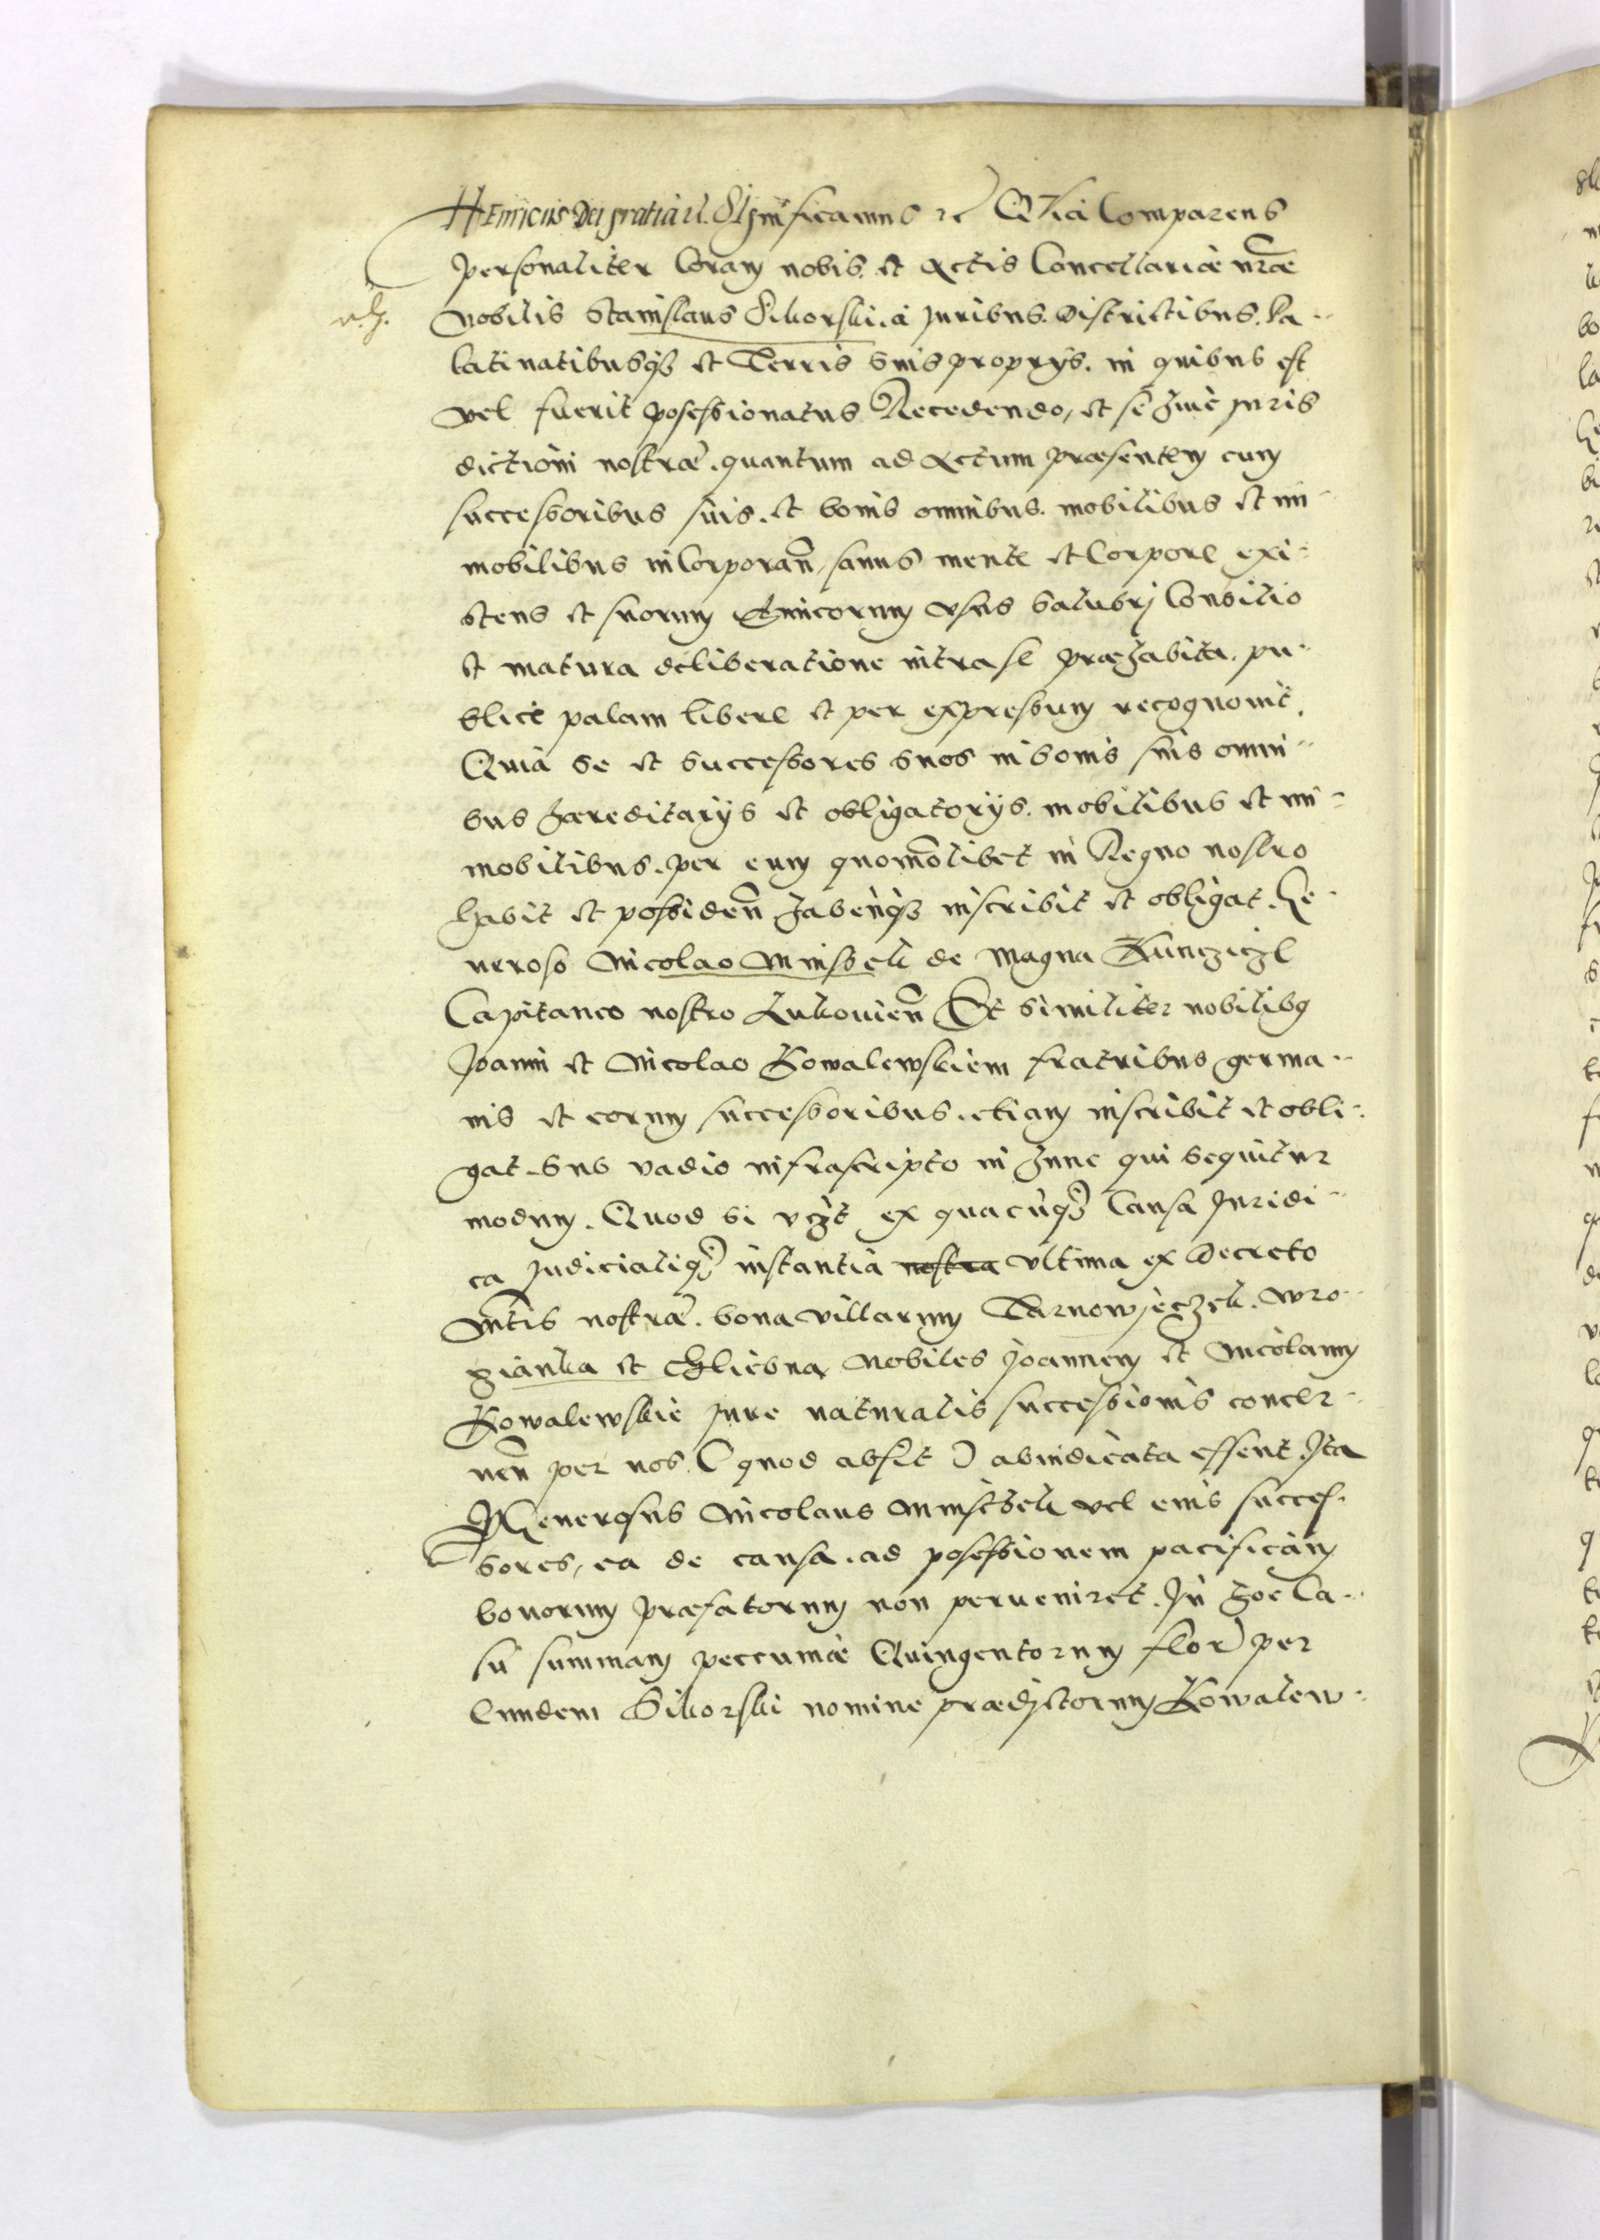 Henricus Dei gratia etc. Significamus etc Quia Comparens
personaliter Coram nobis et Actis Cancellariæ nræ
Nobilis Stanislaus Sikorski a Juribus Districtibus Pa-
latinatibusq3 et Terris suis proprys in quibus est
vel fuerit possessionatus Recedendo, et se huic Juris
dictioni nostræ quantum ad Actum præsentem cum
successoribus suis et bonis omnibus mobilibus et im-
mobilibus incorporan, sanus mente et Corpore exi-
stens et suorum Amicorum usus salubri Consilio
et matura deliberatione intra se præhabita pu-
blice palam libere et per expressum recognouit.
Quia se et successores suos in bonis suis omni-
bus hæreditarijs et obligatorijs mobilibus et im-
mobilibus per eum quomolibet in Regno nostro
habit et possiden habenq3 inscribit et obligat Ge-
neroso Nicolao de Magna
Capitaneo nostro Lukouien Et similiter nobilibus
Joanni et Nicolao Kowalewskiem fratribus germa-
nis et eorum successoribus etiam inscribit et obli-
gat sub vadio infrascripto in hunc qui sequitur
modum. Quod si ex quacuq3 Causa Juridi-
ca Judicialiq3 instantia nostra ultima ex Decreto
Mtis nostræ bona villarum Wro-
et nobiles Joannem et Nicolaum
Kowalewskie Jure naturalis successionis concer-
nen per nos (quod absit) abiudicata essent Ita
Generosus Nicolaus vel eius succes-
sores, ea de causa ad possessionem pacificam
bonorum præfatorum non perueniret. In hoc Ca-
su summam peccuniæ Quingentorum flor per
Eundem Sikorski nomine prædictorum Kowalew-